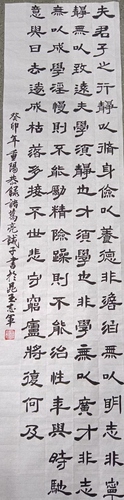 夫君子之行靜以脩身儉以養德非澹泊無以明志非寧
靜無以致遠夫學須靜也才須學也非學無以廣才非志
無以成學淫慢則不能勵精險躁則不能治性年與時馳
意與日去遂成枯落多接不世悲守窮廬將復何及
癸卯年重陽錄諸葛亮誡子書於昆玉志軍